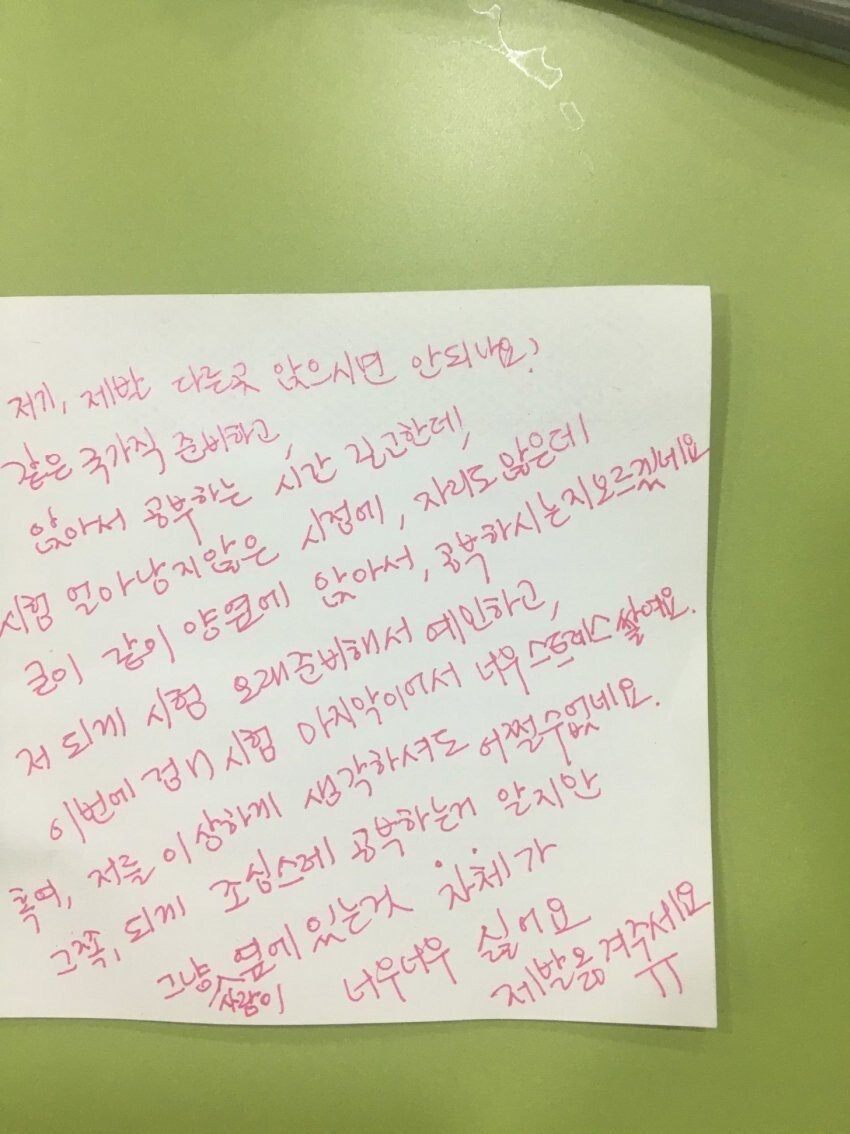 저기, 제발 다른곳 앉으시면 안되나요?
같은 국가직 준비하고,
앉아서 공부하는 시간 길고한데,
시험 얼마남지않은 시점에, 자리도 많은데
굳이 같이 양옆에 앉아서, 공부하시는지모르겠네요
저 되게 시험 오래준비해서 예민하고,
이번에 경시 시험 마지막이어서 너무 스트레스 쌓여요.
혹여, 저를 이상하게 생각하셔도 어쩔수없네요.
그쪽, 되게 조심스레 공부하는거 알지만
그냥 사람이 옆에 있는것 자체가
너무너무 싫어요
제발옮겨주세요
ㅠ